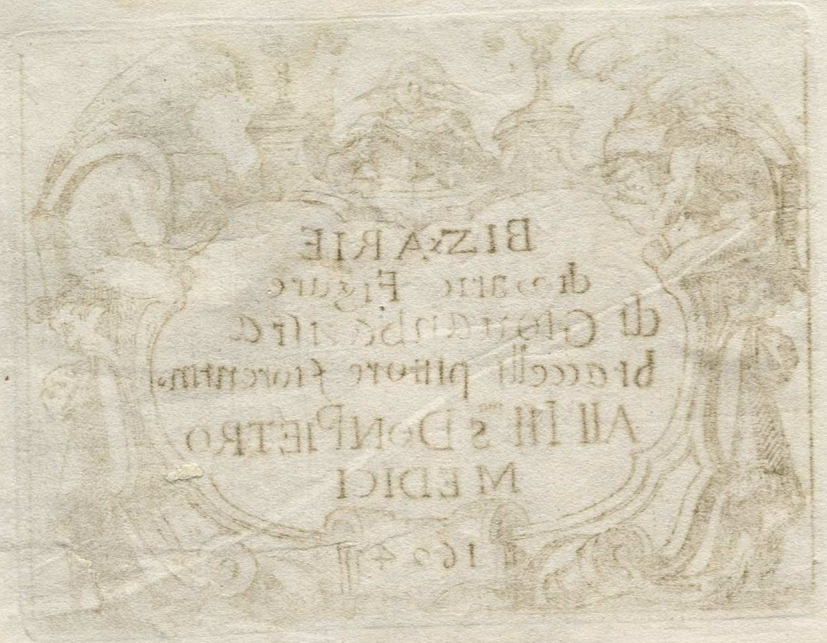 BIZARIE
di varie Figure
di Giovanbatista
braccelli pittore fiorentino
All Ill.mo S DON PIETRO
MEDICI
1624